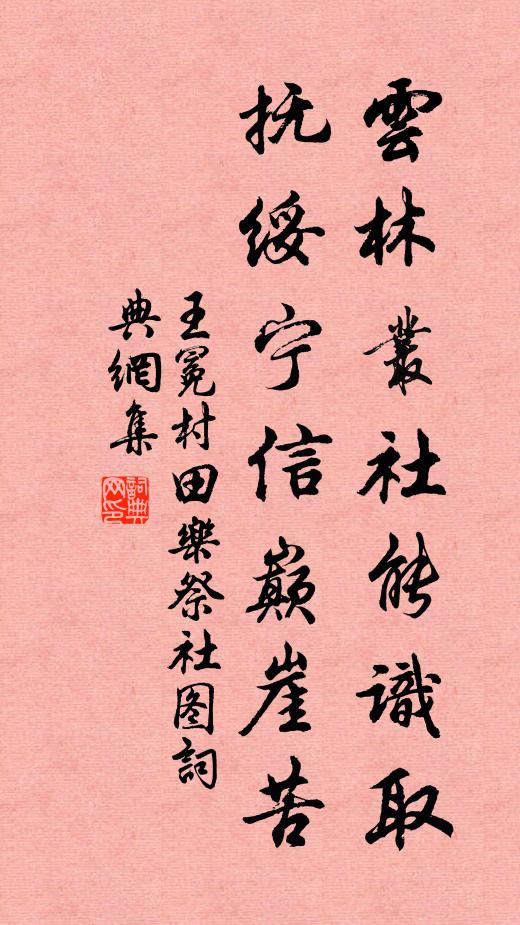 雲林叢社能識取
抚綏宁信巔崖苦
王冕村田樂祭社图詞
典網集
詞典網印